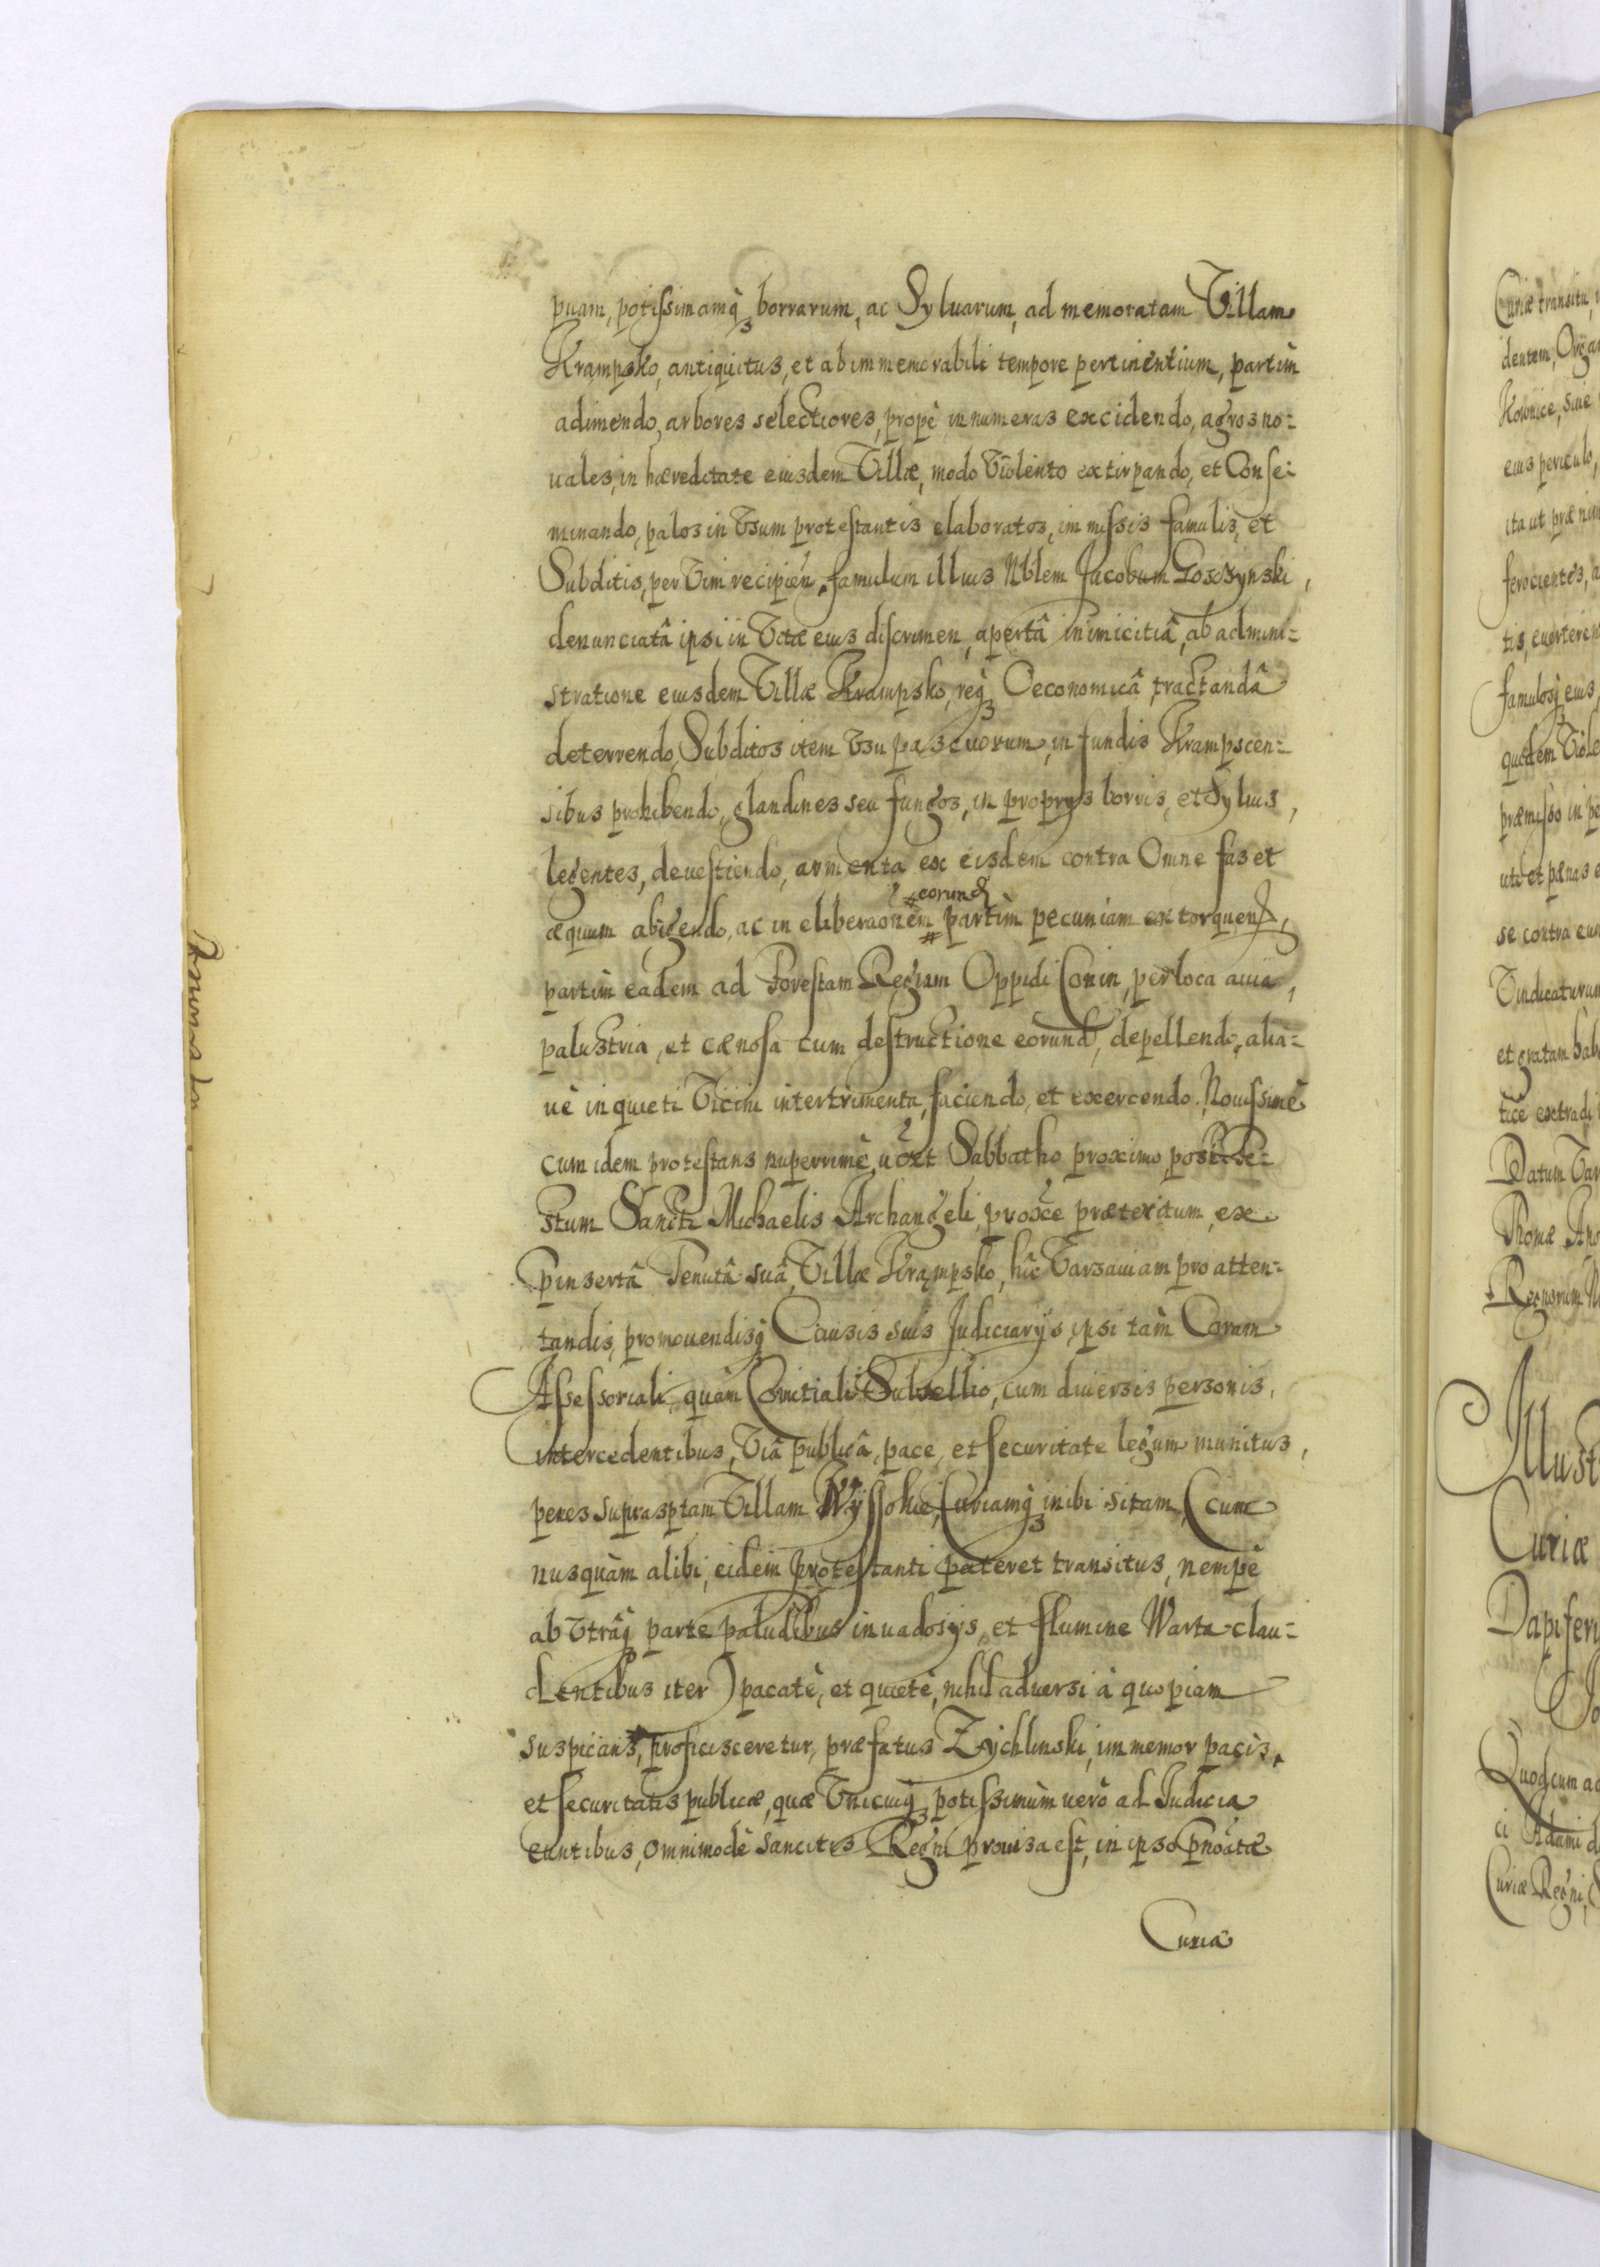 puam, potissimamq́ borrarum, ac Syluarum, ad memoratam Villam
Krąmpsko, antiquitus, et ab immemorabili tempore pertinentium, partim
adimendo, arbores selectiores, propè innumeras excidendo, agros no-
uales, in hæreditate eiusdem Villæ, modo Violento extirpando, et Conse-
minando, palos in Vsum protestantis elaboratos, immissis famulis, et
Subditis, per Vim recipien. famulum illius Nblem Jacobum Goszynski,
denunciatâ ipsi in Vitæ eius discrimen, apertâ inimicitiâ, ab admini-
stratione eiusdem Villæ Krampsko, req́ Oeconomicâ tractandâ
deterrendo, Subditos item Vsu pascuorum, in fundis Krampscen-
sibus prohibendo, glandines seu fungos, in proprys borris, et Syluis,
legentes, deuestiendo, armenta ex eisdem contra Omne fas et
eorund
æquum abigendo, ac in eliberaonem # partìm pecuniam extorquend,
partim eadem ad Forestam Regiam Oppidi Conin, per loca auia,
palustria, et cænosa cum destructione eorund, depellendo, alia-
uè inquieti Vicini intertrimenta, faciendo, et exercendo. Nouissimè
cum idem protestans nuperrimè, uoxt Sabbatho proximo, post Fe-
stum Sancti Michaelis Archangeli, proxe præteritum, ex
pinsertâ Tenutâ suâ, Villæ Krąmpsko, hûc Varsauiam pro atten-
tandis, promouendisq́ Causis suis Judiciarys, ipsi tàm Coram
Assessoriali, quàm Comitiali Subsellio, cum diuersis personis,
intercedentibus, Viâ publicâ, pace, et securitate legum munitus,
penes suprasptam Villam Wyssokie, Curiamq́ inibi sitam, (cum
nusquàm alibi, eidem Protestanti pateret transitus, nempè
ab Vtrâq́ parte paludibus inuadosys, et flumine Warta clau-
dentibus iter) pacatè, et quietè, nihil aduersi à quopiam
suspicans, proficisceretur, præfatus Zychlinski, immemor pacis,
et securitatis publicæ, quæ Vnicuiq́ potissimùm uerò ad Judicia
euntibus, omnimodè sancitis Regni prouisa est, in ipso pnoatæ
Curiæ